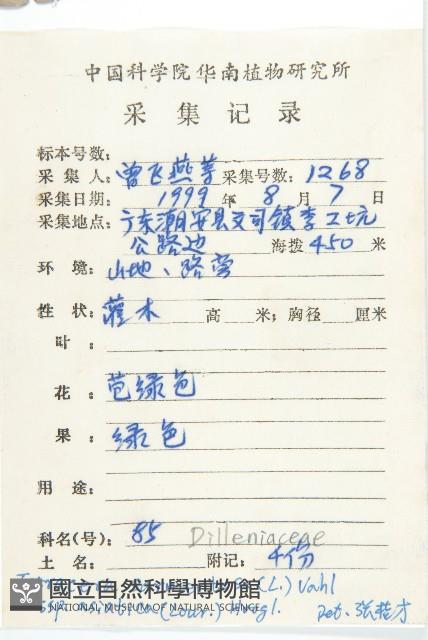 中国科学院华南植物研究所
采集记录
标本号数:
采集人: 曾飞燕等 采集号数: 1268
采集日期: 1999 年 8 月 7 日
采集地点: 广东潮安县文司镇李工坑
公路边 海拨 450 米
环境: 山地、路旁
性状: 灌木 高 米; 胸径 厘米
叶:
花: 苞绿色
果: 绿色
用途:
科名(号): 85 Dilleniaceae
土名: 附记: 4份
(L.) Vahl
國立自然科學博物館
NATIONAL MUSEUM OF NATURAL SCIENCE
(Lour.) Hoogl. Det.